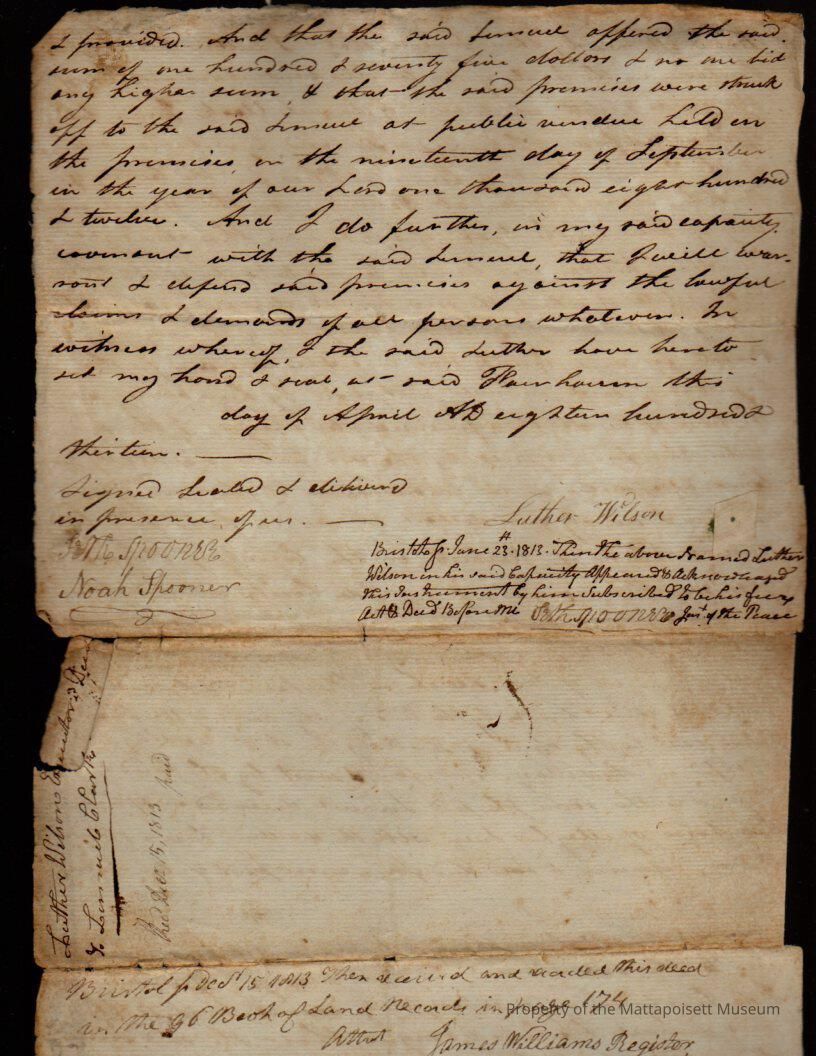 & provided. And that the said Lemuel offered the said
sum of one hundred & seventy five dollars & no one bid
any higher sum, & that the said premises were struck
off to the said Lemuel at public vendue held on
the premises, on the nineteenth day of September
in the year of our Lord one thousand eight hundred
& twelve. And I do further, in my said capacity
covenant with the said Lemuel, that I will war-
rant & defend said premises against the lawful
claims & demands of all persons whatever. In
witness whereof, I the said Luther have hereto
set my hand & seal, at said Fairhaven this
day of April AD eighteen hundred &
thirteen.
Signed Sealed & delivered
in presence of us.
Luther Wilson
Seth Spooner
Noah Spooner
Bristol ss June 23d. 1813. Then the above Named Luther
Wilson in his said Capacity Appeared & Acknowledged
this Instrument by him Subscribed to be his free
Act & Deed Before me Seth Spooner Just of the Peace
Luther Wilson Executor's Deed
to Lemuel Clark
Recd Dec 15, 1813 paid
Bristol ss Dect 15 1813 Then received and recorded this deed
in the 96 Book of Land Records in page 174
Attest James Williams Register
Property of the Mattapoisett Museum